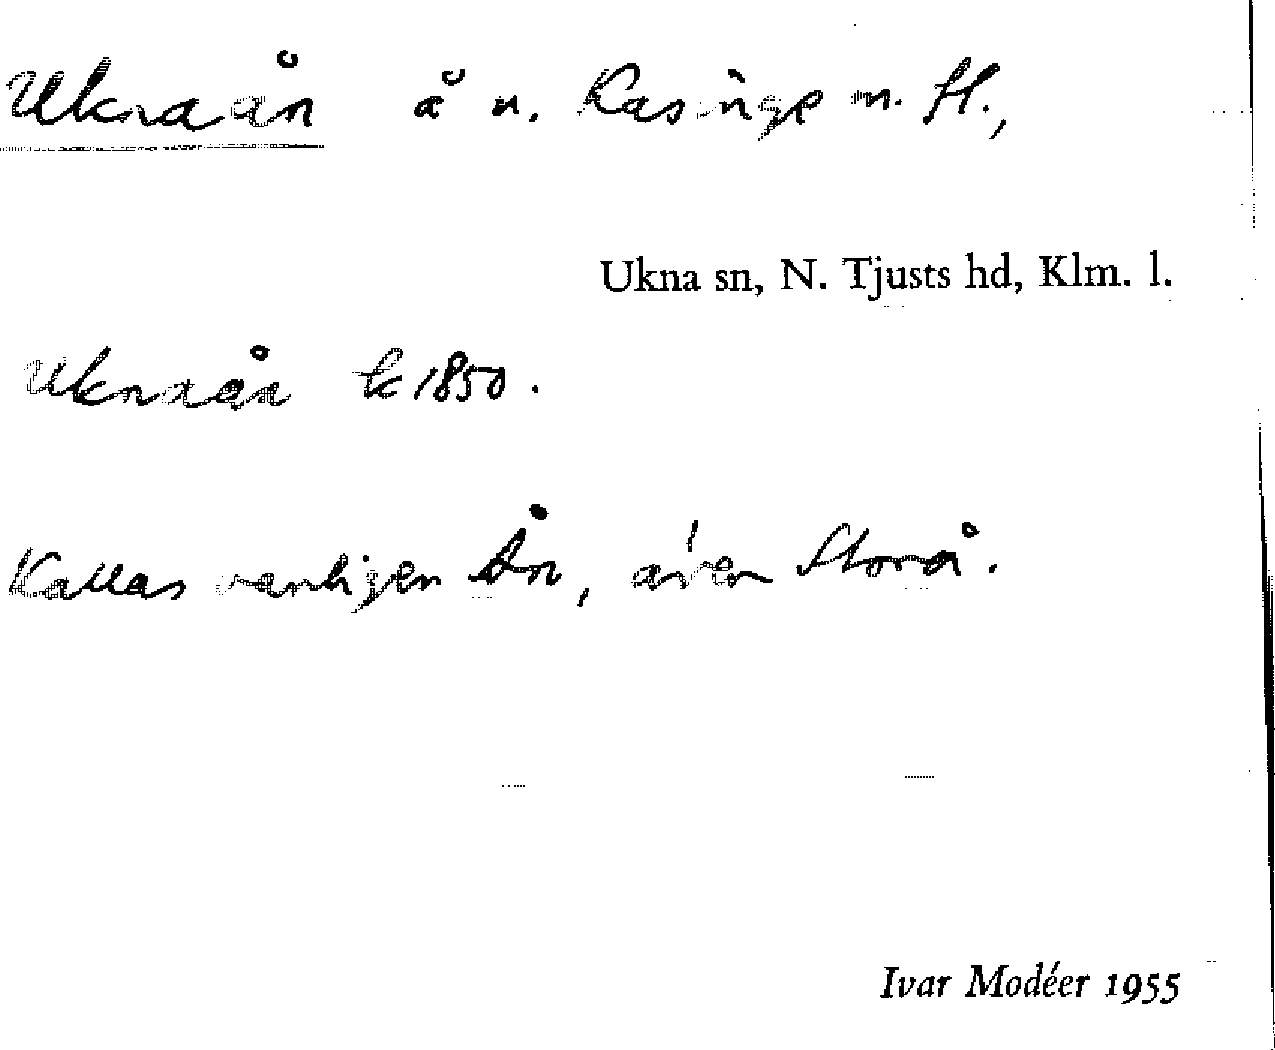 Uknaån å n. Kasinge m. fl.,
Ukna sn, N. Tjusts hd, Klm. l.
Uknaån k 1850.
Kallas vanligen Ån, även Storå.
Ivar Modéer 1955